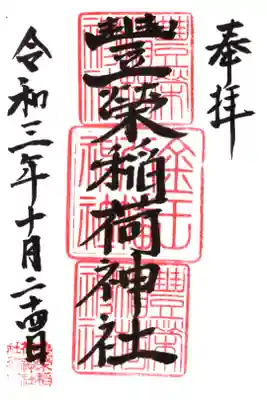 奉拝
豐榮稲荷神社
令和三年十月二十四日